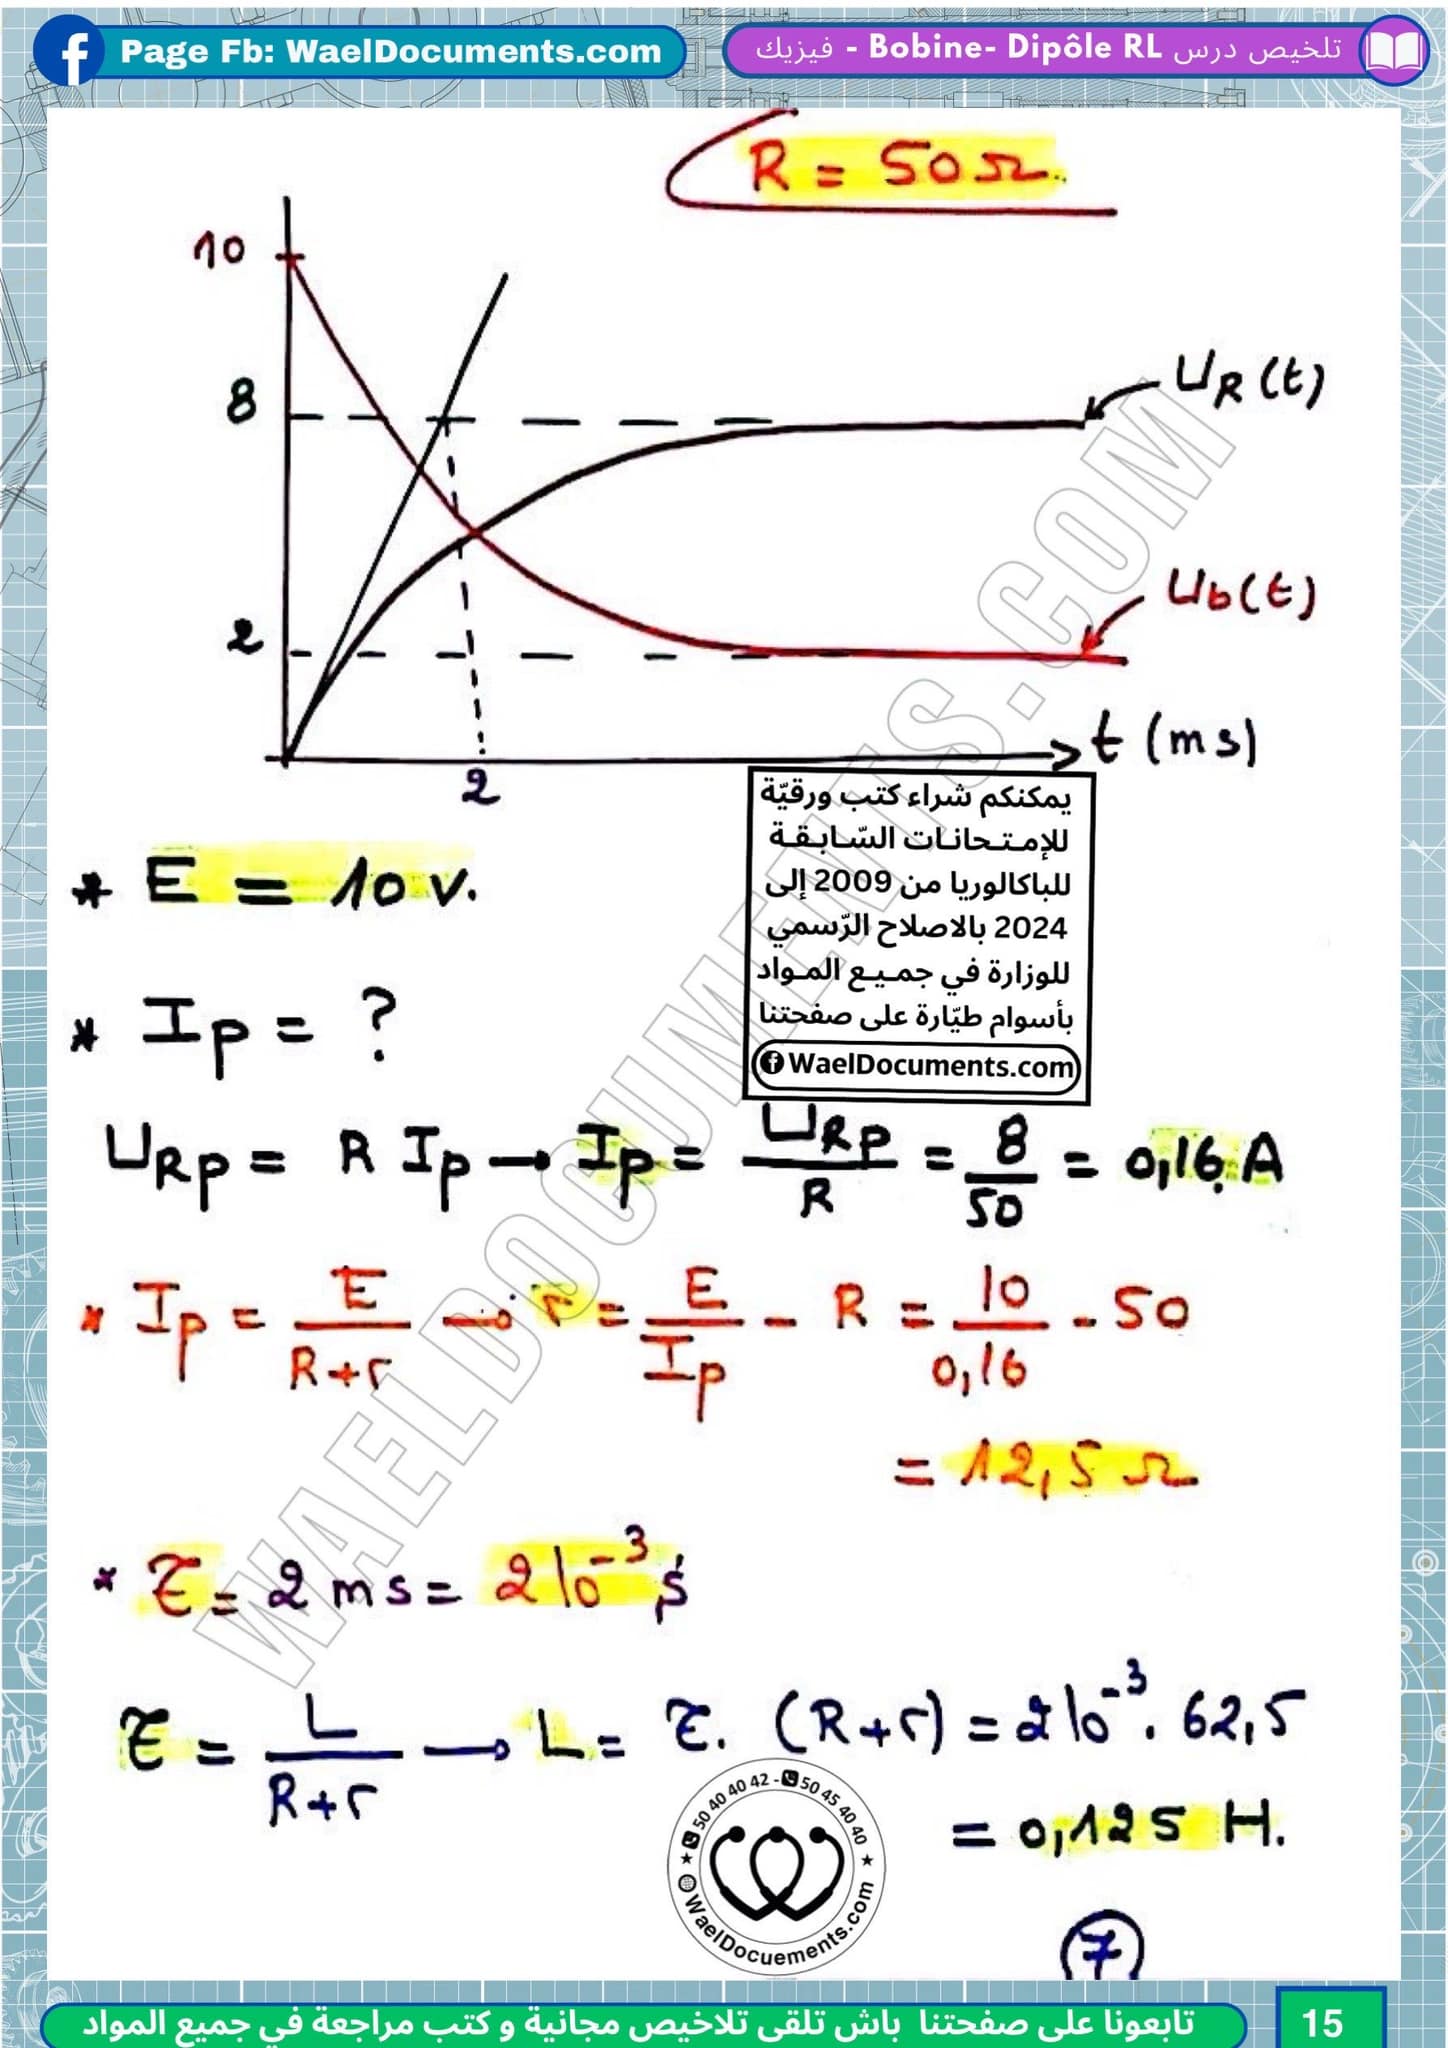 Page Fb: WaelDocuments.com
تلخيص درس Bobine- Dipôle RL - فيزيك
R = 50Ω
10
8
2
U_R(t)
U_b(t)
t (ms)
2
* E = 10 v.
* Ip = ?
يمكنكم شراء كتب ورقيّة
للإمتحانات السّابقة
للباكالوريا من 2009 إلى
2024 بالاصلاح الرّسمي
للوزارة في جميع المواد
بأسوام طيّارة على صفحتنا
WaelDocuments.com
U_Rp = R Ip → Ip = U_Rp / R = 8 / 50 = 0,16 A
* Ip = E / (R+r) → r = E / Ip - R = 10 / 0,16 - 50
= 12,5 Ω
* τ = 2 ms = 2 10⁻³ s
τ = L / (R+r) → L = τ. (R+r) = 2 10⁻³. 62,5
= 0,125 H.
50 40 40 42 - 50 45 40 40
WaelDocuements.com
7
WAELDOCUMENTS.COM
تابعونا على صفحتنا باش تلقى تلاخيص مجانية و كتب مراجعة في جميع المواد
15